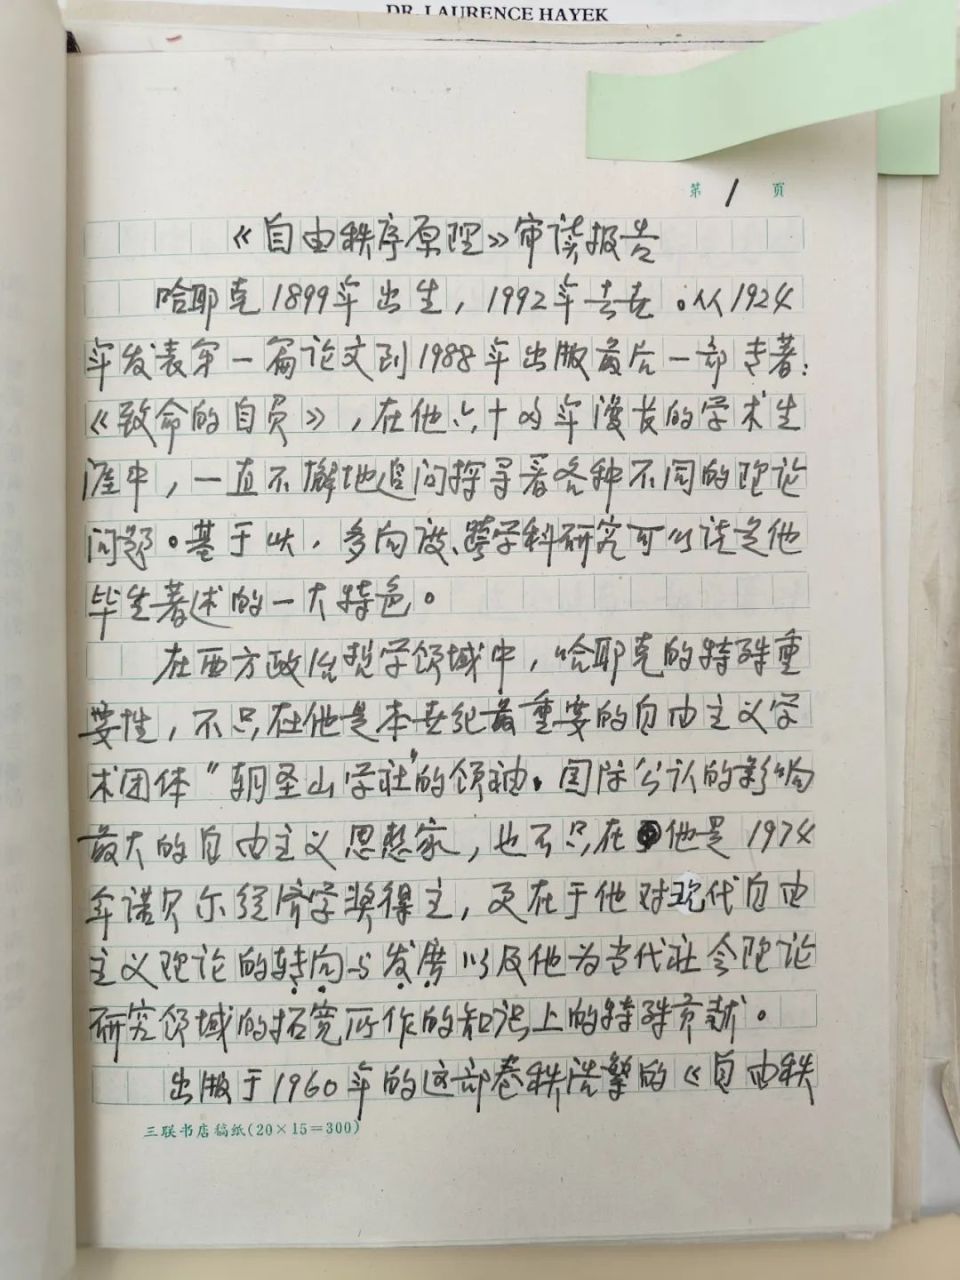 DR. LAURENCE HAYEK
第 1 页
《自由秩序原理》审读报告
哈耶克1899年出生，1992年去世。从1924
年发表第一篇论文到1988年出版最后一部专著：
《致命的自负》，在他六十多年漫长的学术生
涯中，一直不懈地追问探寻着各种不同的理论
问题。基于此，多向度、跨学科研究可以说是他
毕生著述的一大特色。
在西方政治哲学领域中，哈耶克的特殊重
要性，不只在他是本世纪最重要的自由主义学
术团体“朝圣山学社”的领袖、国际公认的影响
最大的自由主义思想家，也不只在他是1974
年诺贝尔经济学奖得主，更在于他对现代自由
主义理论的转向与发展以及他为当代社会理论
研究领域的拓宽所作的知识上的特殊贡献。
出版于1960年的这部卷秩浩繁的《自由秩
三联书店稿纸(20×15=300)